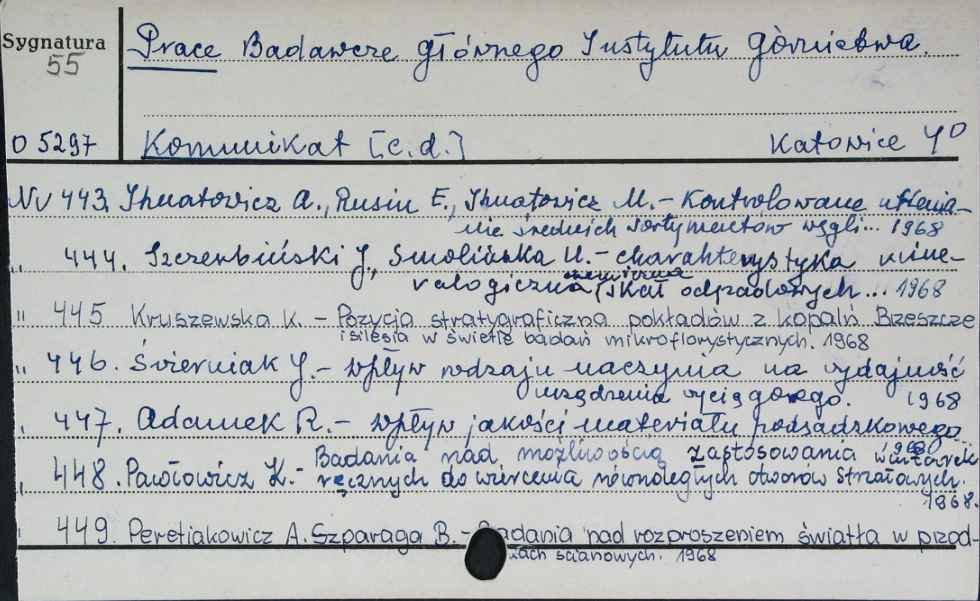 Sygnatura
55
Prace Badawcze Głównego Instytutu Górnictwa.
O 5297 Komunikat [c.d.] Katowice 4°
Nr 443. Ihnatowicz A., Rusin E., Ihnatowicz M. – Kontrolowane utlenia-
nie średnich sortymentów węgli... 1968
„ 444. Szczerbiński J., Smolińska U. – charakterystyka mine-
ralogiczna, chemiczna skał odpadowych... 1968
" 445 Kruszewska K. – Pozycja stratygraficzna pokładów z kopalń Brzeszcze
i Silesia w świetle badań mikroflorystycznych. 1968
„ 446. Świerniak J. – wpływ rodzaju naczynia na wydajność
urządzenia wyciągowego. 1968
„ 447. Adamek R. – wpływ jakości materiału podsadzkowego
1968
„ 448. Pawłowicz K. – Badania nad możliwością zastosowania wiertarek
ręcznych do wiercenia równoległych otworów strzałowych.
1968.
" 449. Peretiakowicz A. Szparaga B. – Badania nad rozproszeniem światła w przod-
kach ścianowych. 1968